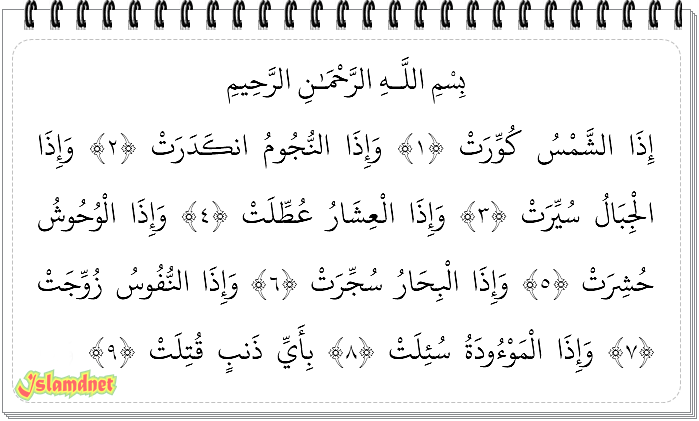 بِسْمِ اللَّـهِ الرَّحْمَـٰنِ الرَّحِيمِ
إِذَا الشَّمْسُ كُوِّرَتْ ﴿١﴾ وَإِذَا النُّجُومُ انكَدَرَتْ ﴿٢﴾ وَإِذَا
الْجِبَالُ سُيِّرَتْ ﴿٣﴾ وَإِذَا الْعِشَارُ عُطِّلَتْ ﴿٤﴾ وَإِذَا الْوُحُوشُ
حُشِرَتْ ﴿٥﴾ وَإِذَا الْبِحَارُ سُجِّرَتْ ﴿٦﴾ وَإِذَا النُّفُوسُ زُوِّجَتْ
﴿٧﴾ وَإِذَا الْمَوْءُودَةُ سُئِلَتْ ﴿٨﴾ بِأَيِّ ذَنبٍ قُتِلَتْ ﴿٩﴾
Islamdnet